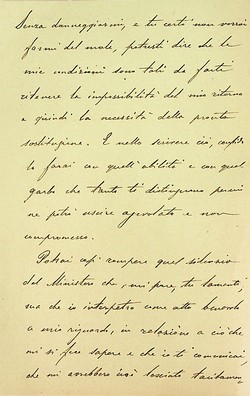 Senza danneggiarmi, e tu certo non vorrai
farmi del male, potresti dire che le
mie condizioni sono tali da farti
ritenere la impossibilità del mio ritorno
e quindi la necessità della pronta
sostituzione. E nello scrivere ciò, confido
lo farai con quell'abilità e con quel
garbo che tanto ti distinguono perchè
ne potrò uscire agevolato e non
compromesso.
Potrai così rompere quel silenzio
del Ministero che, mi pare, tu lamenti,
ma che io interpetro come atto benevolo
a mio riguardo, in relazione a ciò che
mi si fece sapere e che io ti comunicai
che mi avrebbero così lasciato